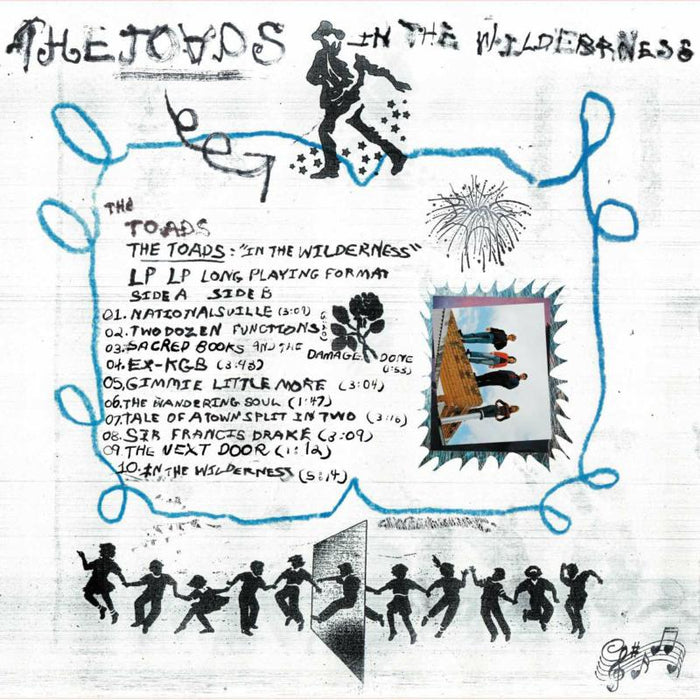 THE TOADS IN THE WILDERNESS
THE
TOADS
THE TOADS: "IN THE WILDERNESS"
LP LP LONG PLAYING FORMAT
SIDE A SIDE B
01. NATIONALSVILLE (3:07)
02. TWO DOZEN FUNCTIONS
03. SACRED BOOKS AND THE DAMAGE DONE (1:53)
04. EX-KGB (3:48)
05. GIMMIE LITTLE MORE (3:04)
06. THE WANDERING SOUL (1:47)
07. TALE OF A TOWN SPLIT IN TWO (3:16)
08. SIR FRANCIS DRAKE (3:09)
09. THE NEXT DOOR (1:12)
10. IN THE WILDERNEST (5:14)